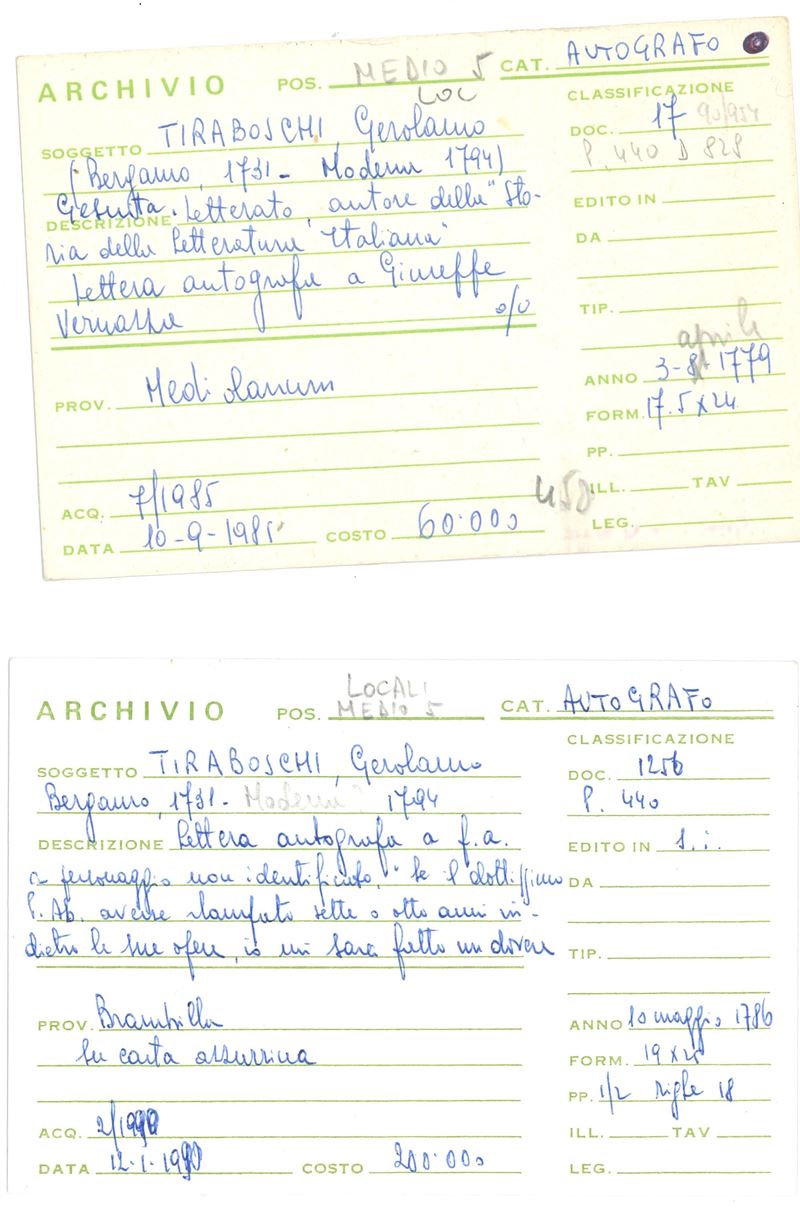 ARCHIVIO POS. MEDIO 5 CAT. AUTOGRAFO
LOC
CLASSIFICAZIONE
SOGGETTO TIRABOSCHI, Gerolamo
DOC. 17 90/954
(Bergamo, 1731 - Modena 1794)
P. 440 D 828
Gesuita. Letterato, autore della "Sto-
DESCRIZIONE
EDITO IN
ria della Letteratura Italiana"
DA
Lettera autografa a Giuseppe
Vernazza o/o
TIP.
aprile
ANNO 3-8-1779
PROV. Mediolanum
FORM. 17.5 x 24
PP.
450
ILL. TAV
ACQ. 7/1985
DATA 10-9-1985 COSTO 60.000
LEG.
ARCHIVIO POS. LOCALI
MEDIO 5 CAT. AUTOGRAFO
CLASSIFICAZIONE
SOGGETTO TIRABOSCHI, Gerolamo
DOC. 1256
Bergamo, 1731 - Modena 1794
P. 440
DESCRIZIONE Lettera autografa a f.a.
EDITO IN s.i.
a personaggio non identificato, "Se il dottissimo
DA
P. Ab. avesse stampato sette o otto anni in-
dietro le sue opere, io mi sarei fatto un dovere
TIP.
PROV. Brambilla
ANNO 10 maggio 1786
Su carta azzurrina
FORM. 19 x 25
PP. 1/2 righe 18
ACQ. 2/1990
ILL. TAV
DATA 12.1.1990 COSTO 200.000
LEG.